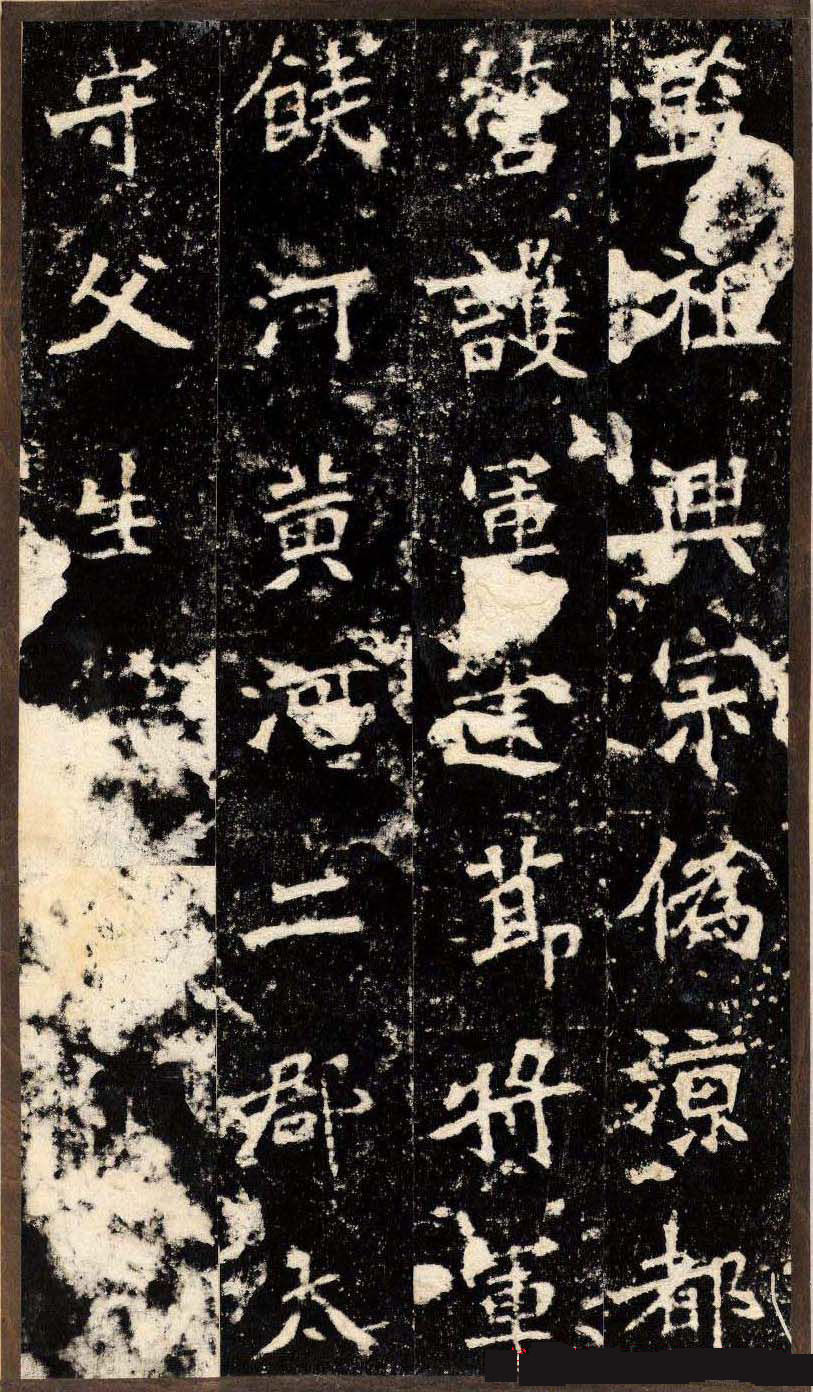 監祖興宗偽涼都
營護軍建節將軍
饒河黃河二郡太
守父生